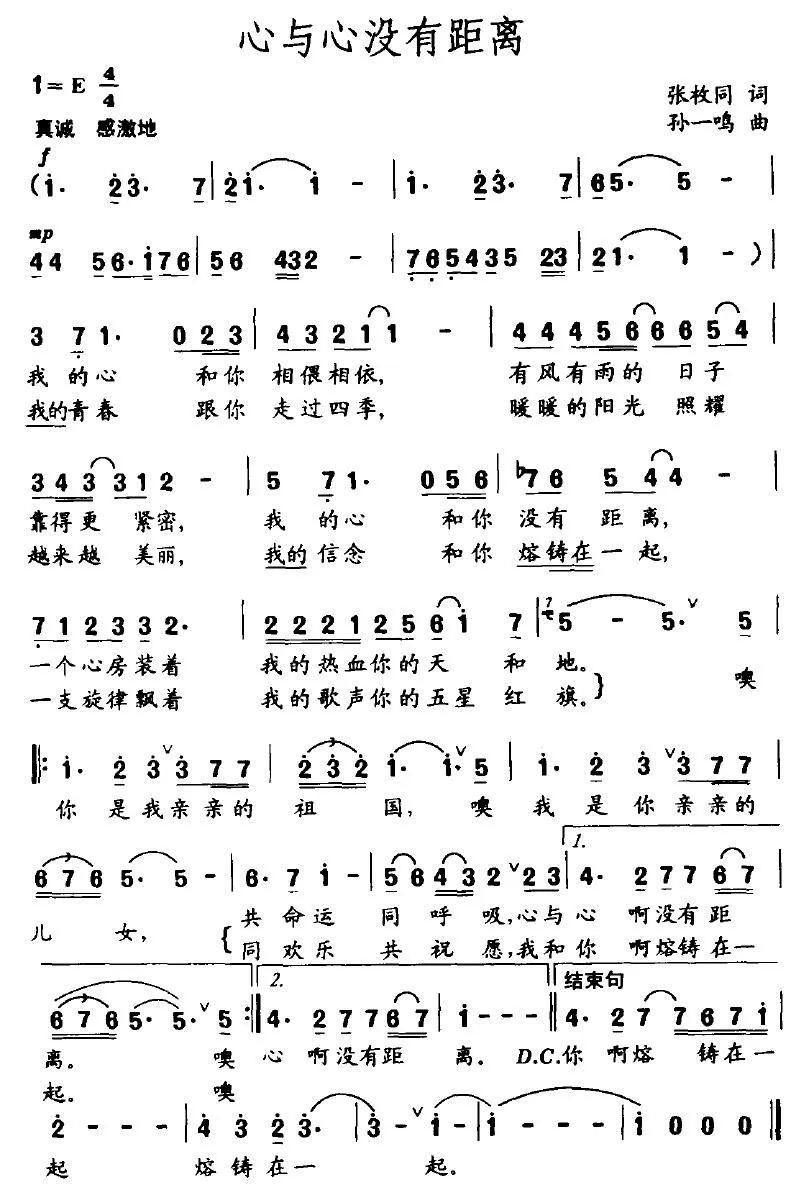 心与心没有距离
1=E 4/4
张枚同 词
真诚 感激地
孙一鸣 曲
f
(i· 2 3· 7 | 2 i· i - | i· 2 3· 7 | 6 5· 5 - |
mp
4 4 5 6· i 7 6 | 5 6 4 3 2 - | 7 6 5 4 3 5 2 3 | 2 1· 1 - ) |
3 7 1· 0 2 3 | 4 3 2 1 1 - | 4 4 4 5 6 6 6 5 4 |
我 的心 和你 相偎相依, 有风有雨的 日子
我的青春 跟你 走过四季, 暖暖的阳光 照耀
3 4 3 3 1 2 - | 5 7 1· 0 5 6 | ♭7 6 5 4 4 - |
靠得更 紧密, 我 的心 和你 没有 距离,
越来越 美丽, 我的信念 和你 熔铸在一起,
7 1 2 3 3 2· | 2 2 2 1 2 5 6 i 7 | 7 5 - 5· ∨ 5 |
一个心房装着 我的热血你的天 和 地。
一支旋律飘着 我的歌声你的五星 红 旗。} 噢
‖: i· 2 3 ∨ 3 7 7 | 2 3 2 i· i· ∨ 5 | i· 2 3 ∨ 3 7 7 |
你 是我亲亲的 祖 国, 噢 我 是你亲亲的
1.
6 7 6 5· 5 - | 6· 7 i - | 5 6 4 3 2 ∨ 2 3 | 4· 2 7 7 6 7 |
儿 女, { 共命运 同呼 吸,心与心 啊没有距
同欢乐 共祝 愿,我和你 啊熔铸在一
2. 结束句
6 7 6 5· 5· ∨ 5 :‖ 4· 2 7 7 6 7 | i - - - ‖ 4· 2 7 7 6 7 i |
离。 噢 心 啊没有距 离。 D.C.你 啊熔 铸在一
起。 噢
2 - - - | 4 3 2 3· | 3 - ∨ i i | i - - - | i 0 0 0 ‖
起 熔铸在一 起。